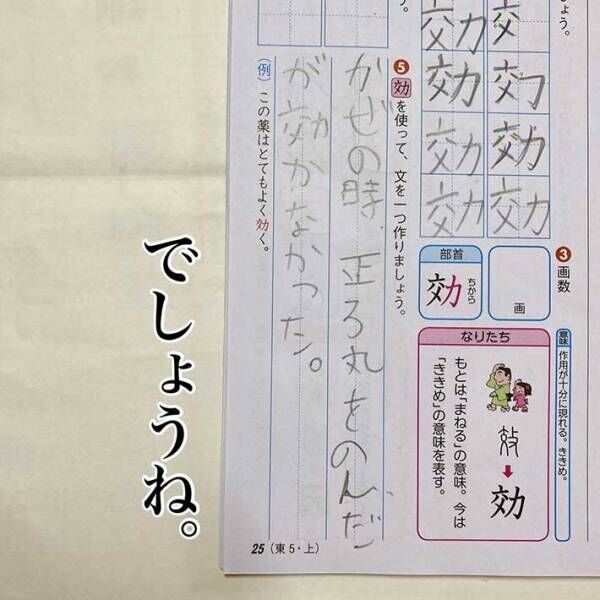 よう。
う。
交力
効
効
効
交
効
効
効
❸画数
画
部首
効
ちから
意味
作用が十分に現れる。ききめ。
なりたち
もとは「まねる」の意味。今は
「ききめ」の意味を表す。
効
❺効を使って、文を一つ作りましょう。
かぜの時、正ろ丸をのんだ
が効かなかった。
(例) この薬はとてもよく効く。
25 (東5・上)
でしょうね。